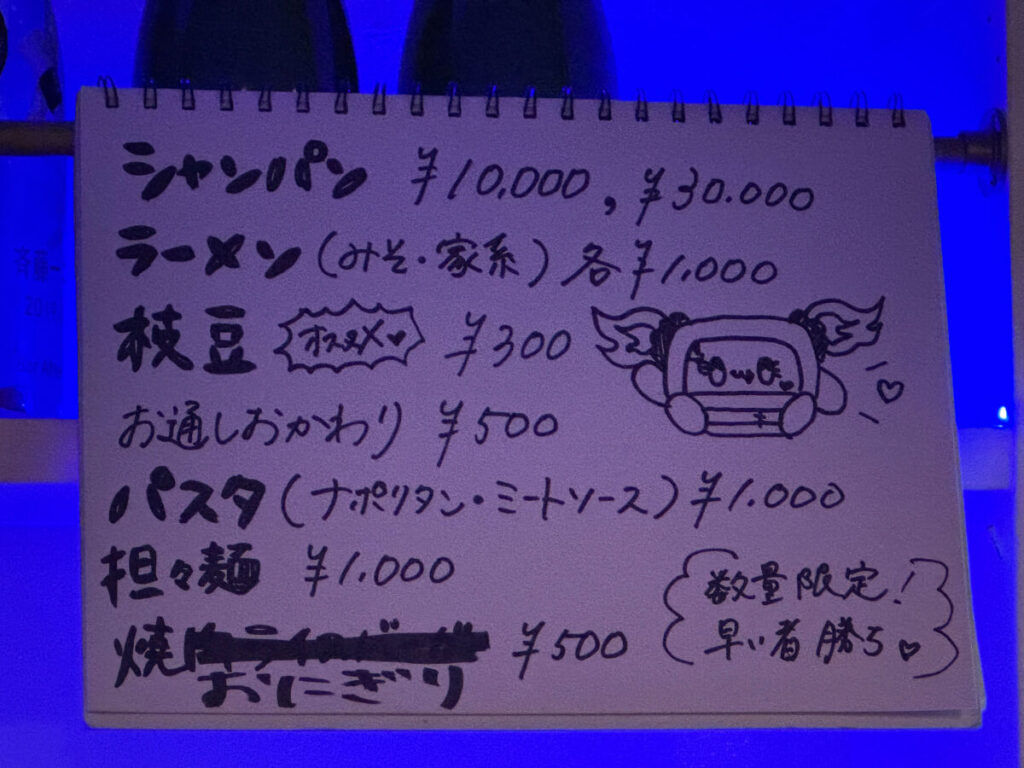 シャンパン ¥10,000, ¥30.000
ラーメン(みそ・家系)各¥1,000
枝豆 オススメ♡ ¥300
お通しおかわり ¥500
パスタ(ナポリタン・ミートソース)¥1.000
担々麺 ¥1.000
焼おにぎり ¥500
数量限定!
早い者勝ち♡